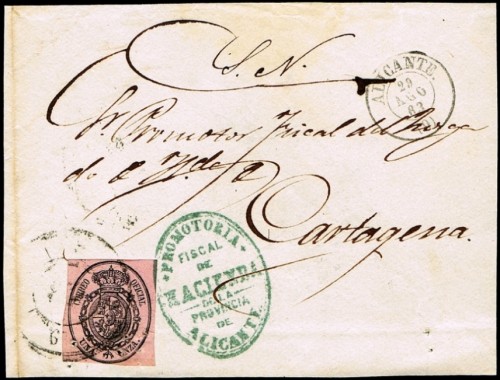 S. N.
ALICANTE.
29
AGO
63
Sr. Promotor Fiscal del Juzgo
de
Cartagena.
* PROMOTORIA *
FISCAL
DE
HACIENDA
DE LA
PROVINCIA
DE
ALICANTE
CORREO OFICIAL
ONZA.